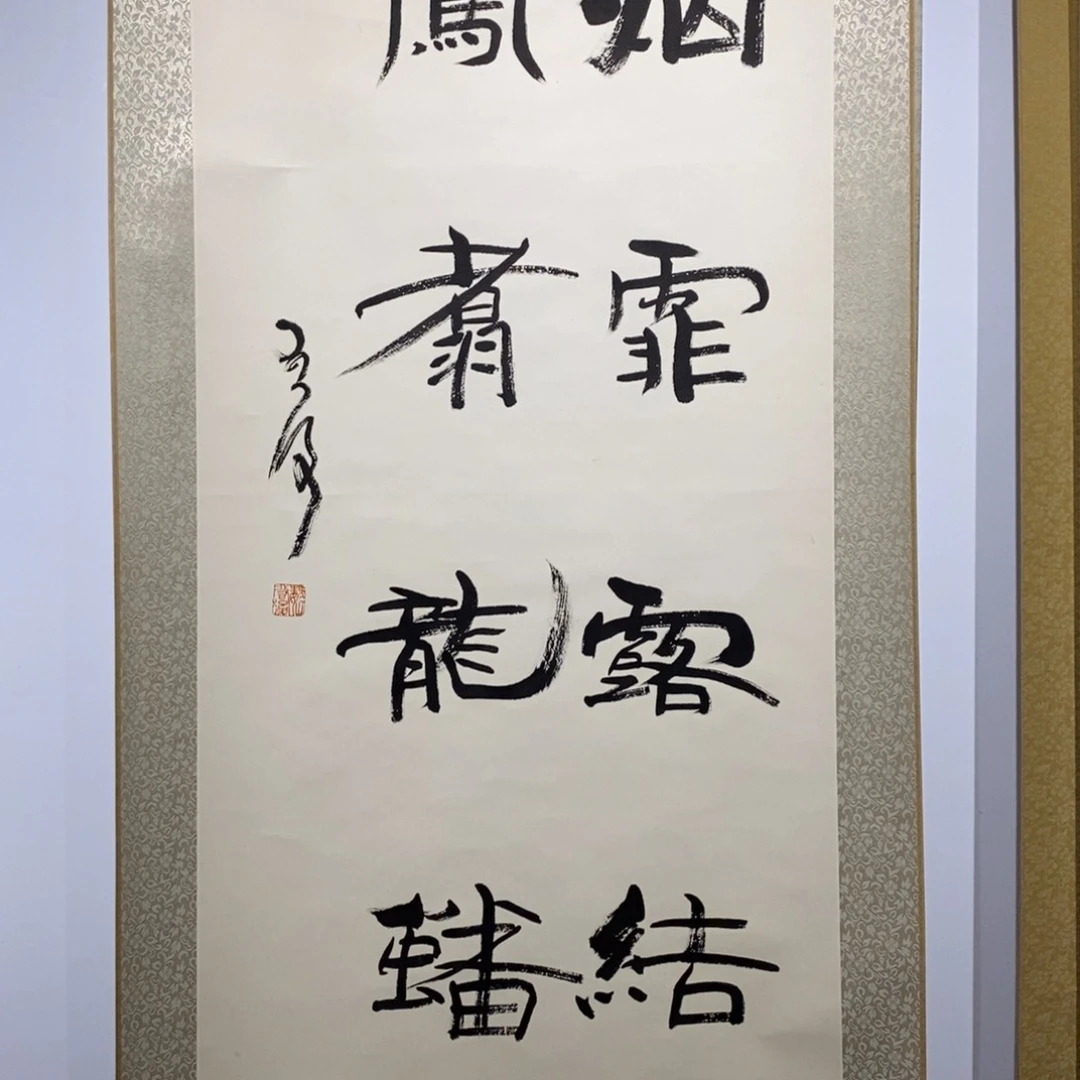 烟霏露結
鳳翥龍蟠